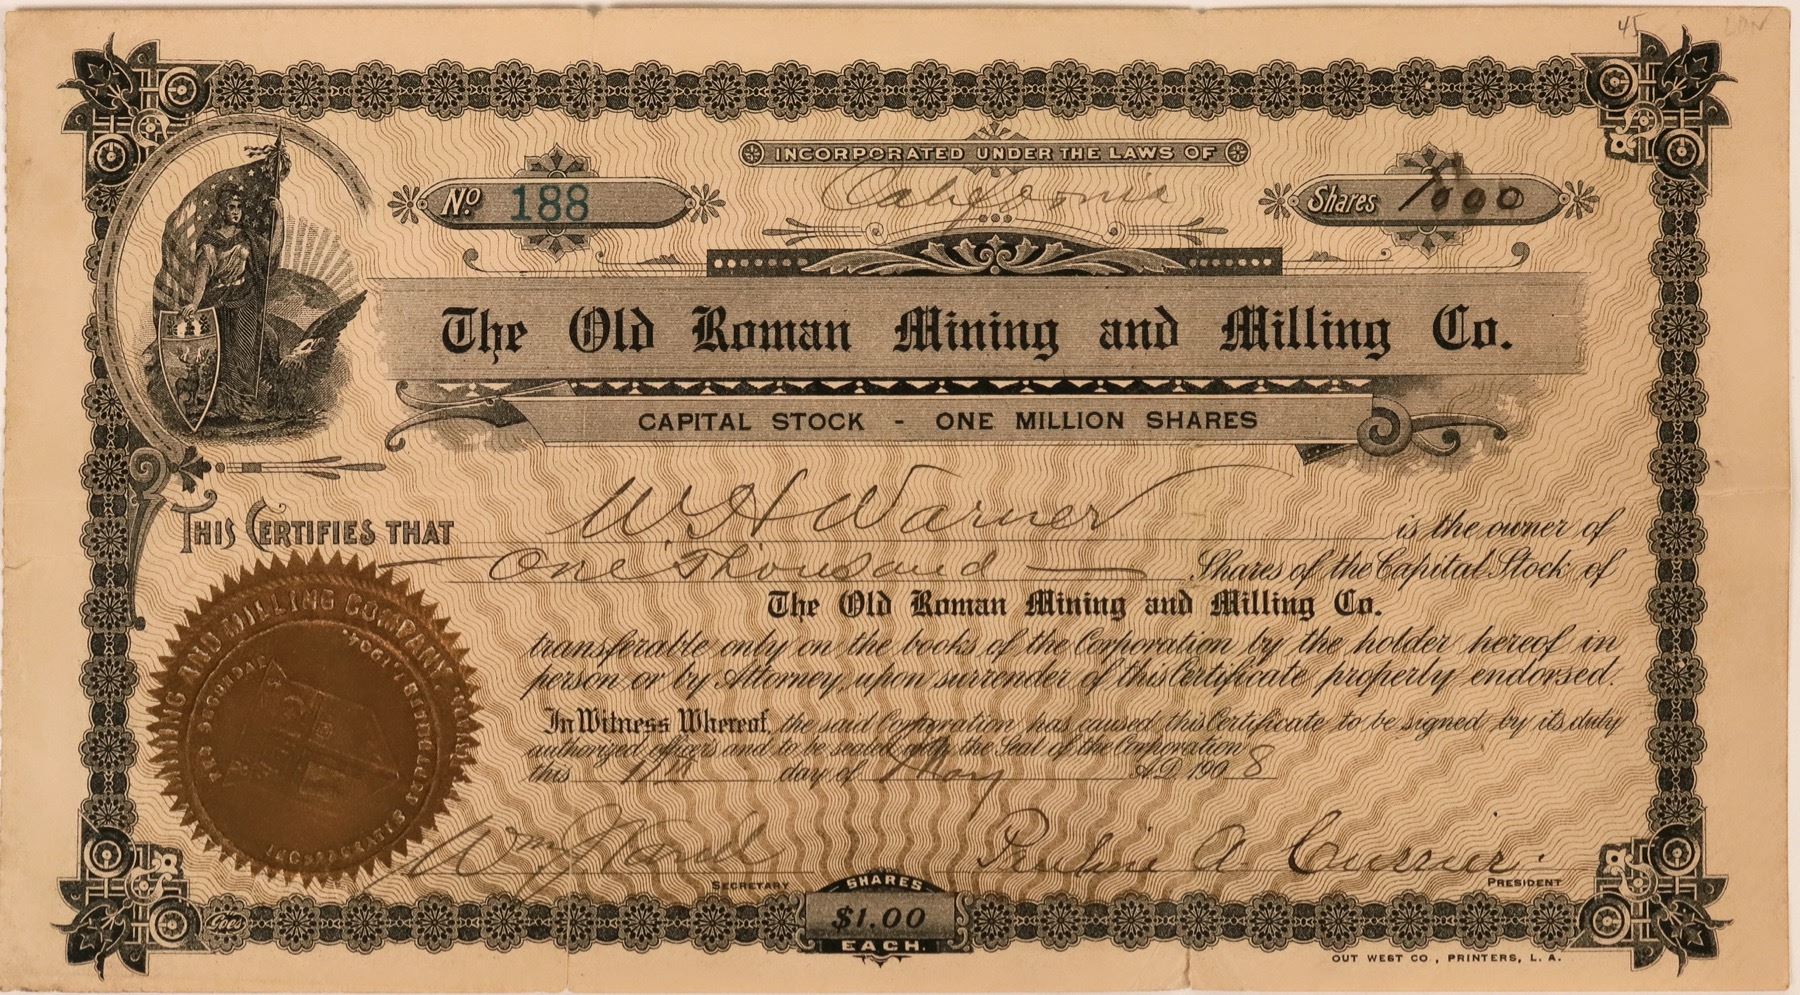 45 LDN
INCORPORATED UNDER THE LAWS OF
California
No 188
Shares 1000
The Old Roman Mining and Milling Co.
CAPITAL STOCK - ONE MILLION SHARES
THIS CERTIFIES THAT W. H Warner is the owner of
One Thousand Shares of the Capital Stock of
The Old Roman Mining and Milling Co.
transferable only on the books of the Corporation by the holder hereof in
person or by Attorney, upon surrender of this Certificate properly endorsed.
In Witness Whereof, the said Corporation has caused this Certificate to be signed by its duly
authorized officers and to be sealed with the Seal of the Corporation
this day of May A.D. 1908
MINING AND MILLING COMPANY.
INCORPORATED
Wm
Pauline A Currier
SECRETARY
PRESIDENT
SHARES
$1.00
EACH.
Goes
OUT WEST CO., PRINTERS, L. A.